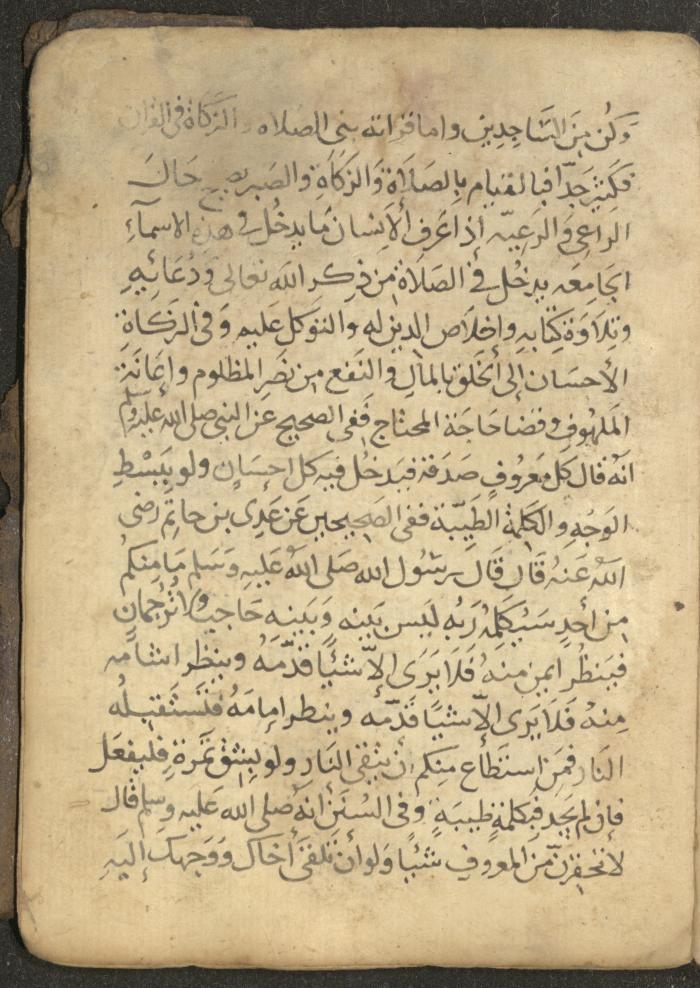 وكن من الساجدين واما قرانه بين الصلاه والزكاة في القران
فكثير جدّا فبالقيام بالصلاة والزكاة والصبر يصلح حال
الراعي والرعيّه إذا عرف الانسان ما يدخل في هذه الاسماء
الجامعه يدخل في الصلاة من ذكر الله تعالى ودعائه
وتلاوة كتابه وإخلاص الدين له والتوكل عليه وفى الزكاة
الاحسان إلى الخلق بالمال والنفع من نصر المظلوم وإعانة
الملهوف وقضا حاجة المحتاج ففي الصحيح عن النبي صلى الله عليه وسلم
انه قال كل معروف صدقة فيدخل فيه كل احسان ولو ببسط
الوجه والكلمة الطيّبة ففى الصحيحين عن عدي بن حاتم رضى
الله عنه قال قال رسول الله صلى الله عليه وسلم ما منكم
من أحد سيكلمه ربه ليس بينه وبينه حاجب ولا ترجمان
فينظر ايمن منه فلا يرى الاّ شيئًا قدّمه وينظر اشامه
منه فلا يرى الاّ شيئًا قدّمه وينظر امامه فتستقبله
النار فمن استطاع منكم ان يتقى النار ولو بشق تمرة فليفعل
فان لم يجد فبكلمة طيبة وفى السنن انه صلى الله عليه وسلم قال
لا تحقرنّ من المعروف شيئًا ولو أن تلقى أخاك ووجهك إليه